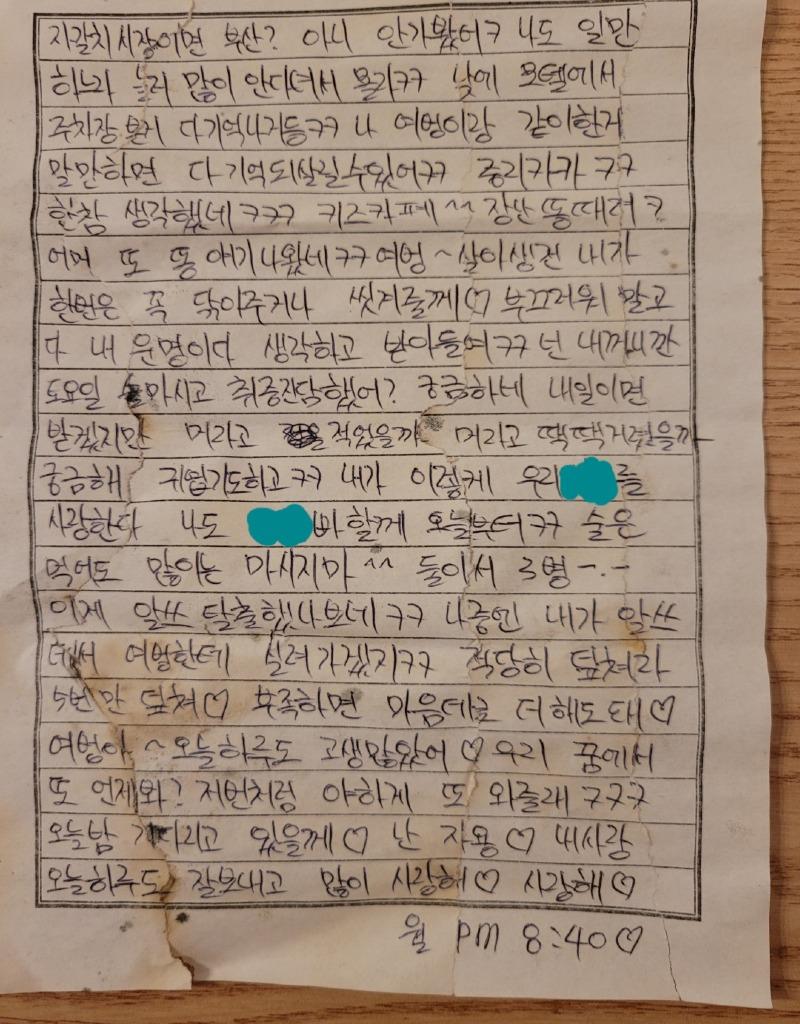 자갈치시장이면 부산? 아니 안가봤어ㅋ 나도 일만
하느라 놀러 많이 안다녀서 몰라ㅋㅋ 낮에 모텔에서
주차장 본거 다기억나거등ㅋㅋ 나 여벙이랑 같이한거
말만하면 다 기억되살릴수있어ㅋㅋ 종리카카 ㅋㅋ
한참 생각했네 ㅋㅋㅋ 키즈카페^^ 장산 똥때려?
어머 또 똥 얘기나왔네ㅋㅋ 여벙~살아생전 내가
한번은 꼭 닦아주거나 씻겨줄께♡ 부끄러워 말고
다 내 운명이다 생각하고 받아들여ㅋㅋ 넌 내꺼니깐
토요일 술마시고 취중진담했어? 궁금하네 내일이면
받겠지만 머라고 적었을까 머라고 떽떽거렸을까
궁금해 귀엽기도하고ㅋㅋ 내가 이렇케 우리 를
사랑한다 나도 바 할께 오늘부터ㅋㅋ 술은
먹어도 많이는 마시지마^^ 둘이서 3병-.-
이제 알쓰 탈출했나보네ㅋㅋ 나중엔 내가 알쓰
되서 여벙한테 실려가겠지ㅋㅋ 적당히 덮쳐라
5번만 덮쳐♡ 부족하면 마음데로 더해도돼♡
여벙아~오늘하루도 고생많았어♡우리 꿈에서
또 언제와? 저번처럼 야하게 또 와줄래ㅋㅋㅋ
오늘밤 기다리고 있을께♡ 난 자용♡ 내사랑
오늘하루도 잘보내고 많이 사랑해♡ 사랑해♡
월 PM 8:40♡